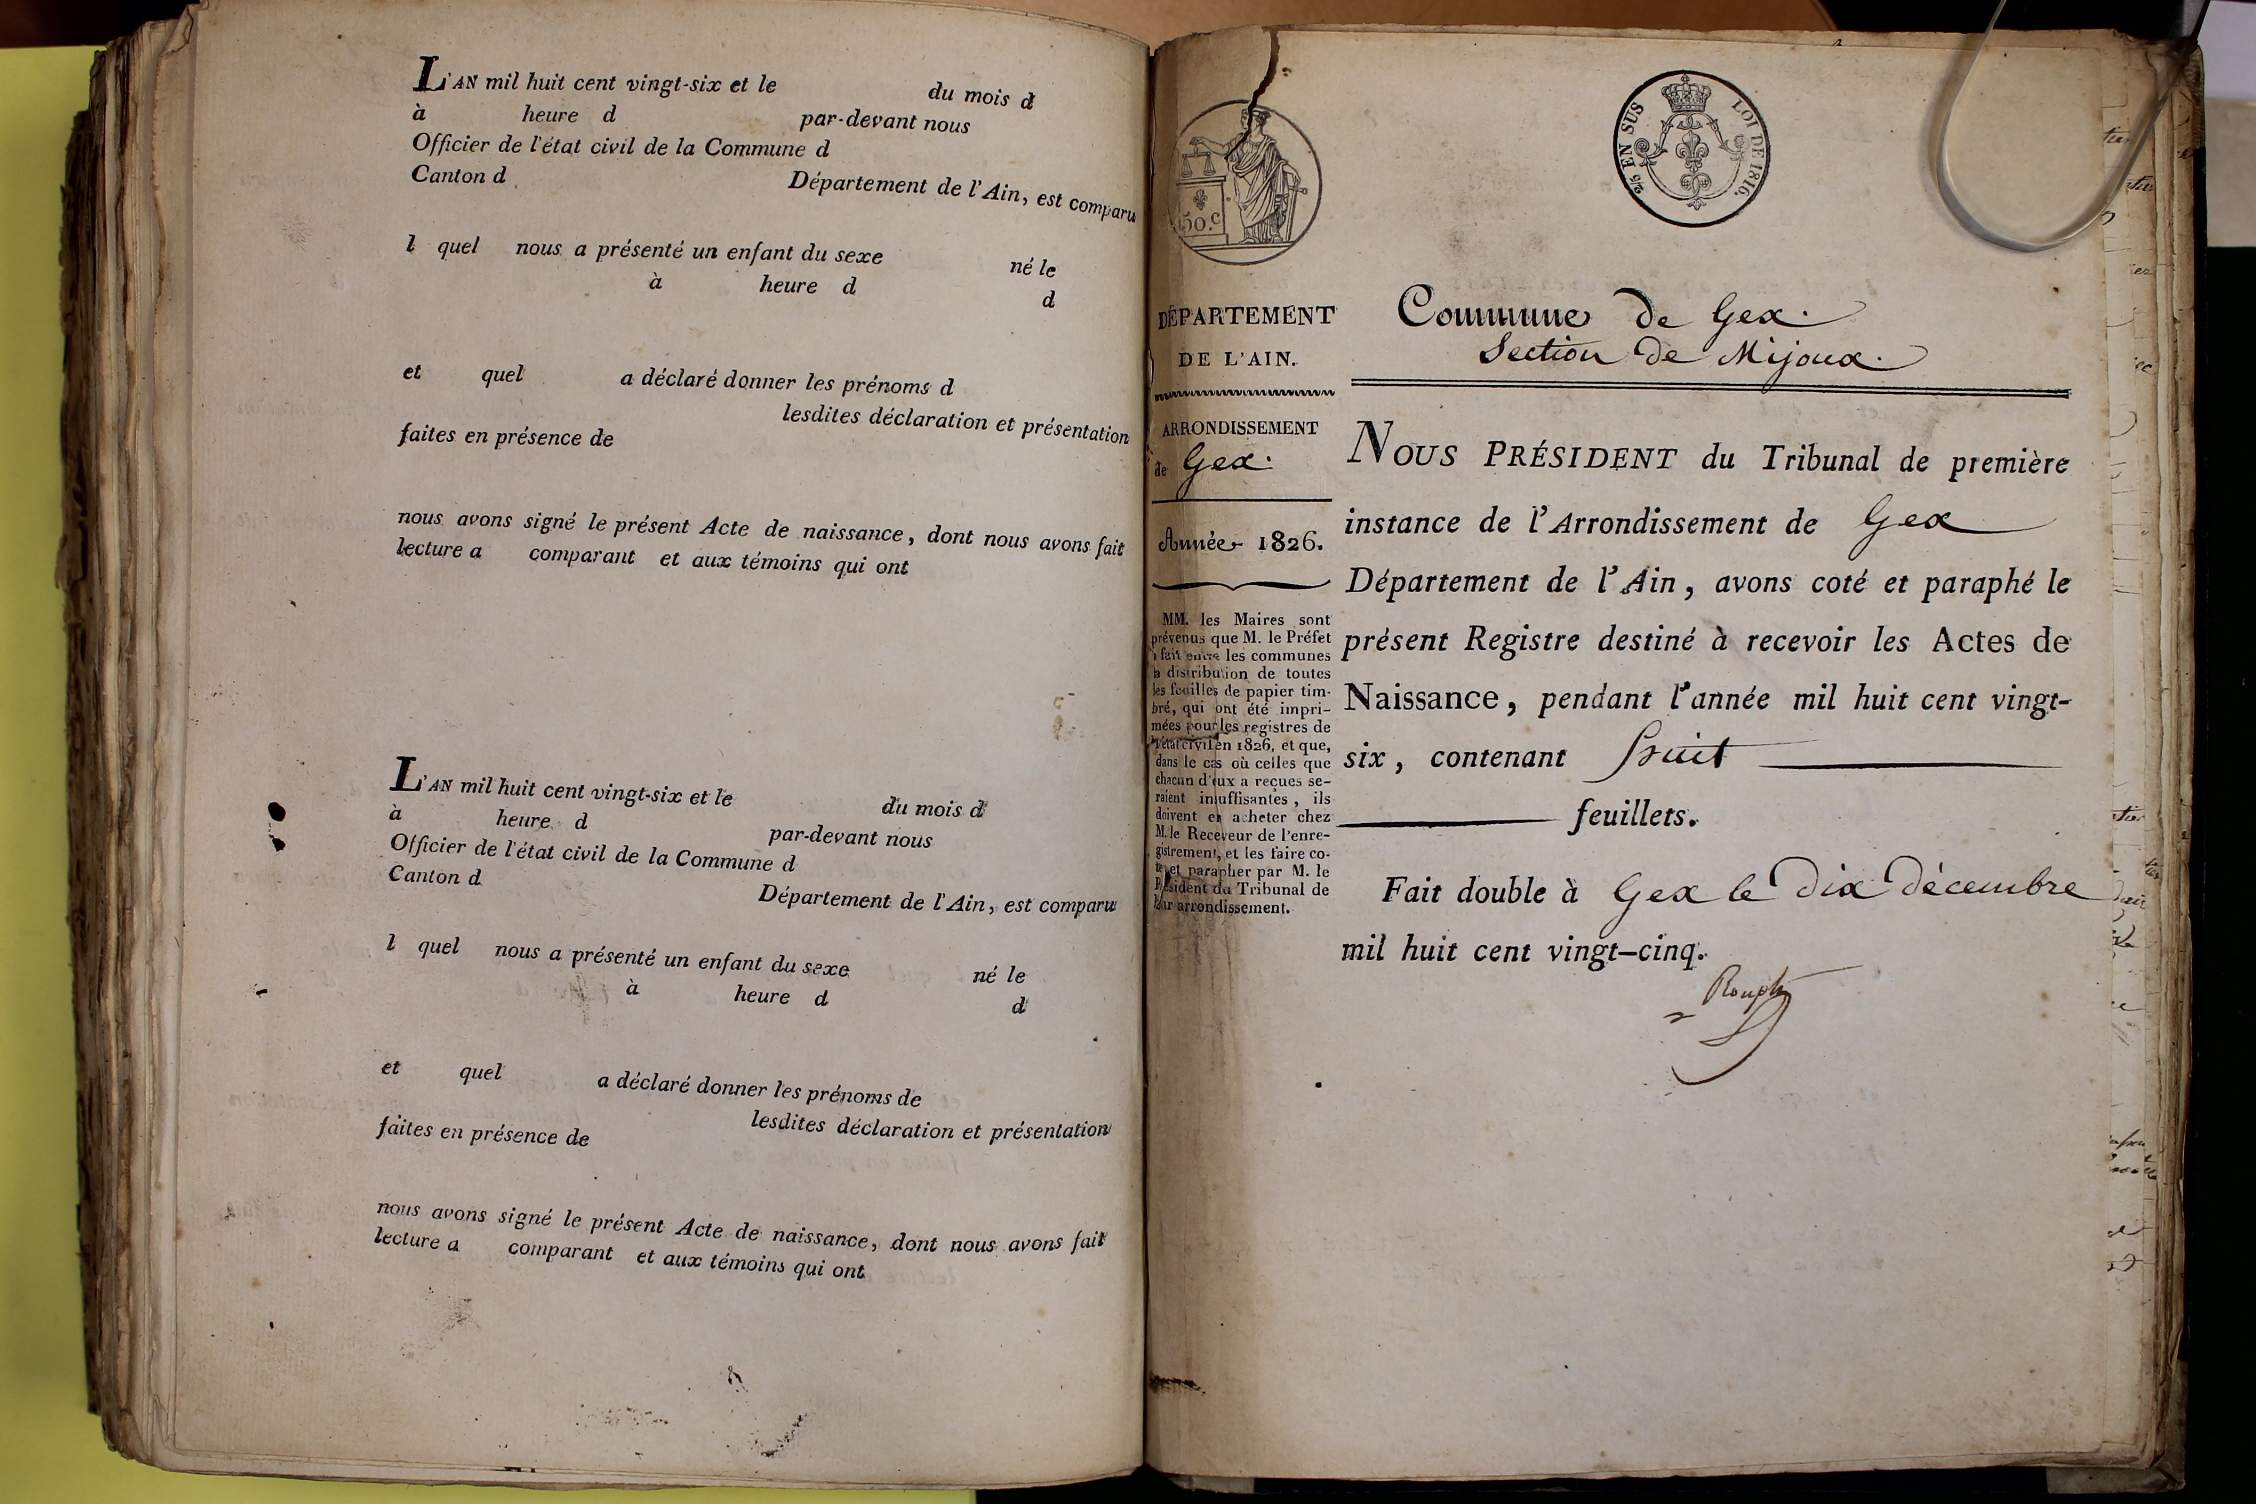 L'AN mil huit cent vingt-six et le du mois d
à heure d par-devant nous
Officier de l'état civil de la Commune d
Canton d Département de l'Ain, est comparu
l quel nous a présenté un enfant du sexe né le
à heure d d
et quel a déclaré donner les prénoms d
lesdites déclaration et présentation
faites en présence de
nous avons signé le présent Acte de naissance, dont nous avons fait
lecture a comparant et aux témoins qui ont
L'AN mil huit cent vingt-six et le du mois d
à heure d par-devant nous
Officier de l'état civil de la Commune d
Canton d Département de l'Ain, est comparu
l quel nous a présenté un enfant du sexe né le
à heure d d
et quel a déclaré donner les prénoms de
lesdites déclaration et présentation
faites en présence de
nous avons signé le présent Acte de naissance, dont nous avons fait
lecture a comparant et aux témoins qui ont
50.c
2/5 EN SUS LOI DE 1816.
DÉPARTEMENT
DE L'AIN.
ARRONDISSEMENT
de Gex.
Année 1826.
MM. les Maires sont
prévenus que M. le Préfet
a fait entre les communes
la distribution de toutes
les feuilles de papier tim-
bré, qui ont été impri-
mées pour les registres de
l'état civil en 1826, et que,
dans le cas où celles que
chacun d'eux a reçues se-
raient insuffisantes, ils
doivent en acheter chez
M. le Receveur de l'enre-
gistrement, et les faire co-
ter et parapher par M. le
Président du Tribunal de
leur arrondissement.
Commune de Gex.
Section de Mijoux.
NOUS PRÉSIDENT du Tribunal de première
instance de l'Arrondissement de Gex
Département de l'Ain, avons coté et paraphé le
présent Registre destiné à recevoir les Actes de
Naissance, pendant l'année mil huit cent vingt-
six, contenant huit
feuillets.
Fait double à Gex le dix décembre
mil huit cent vingt-cinq.